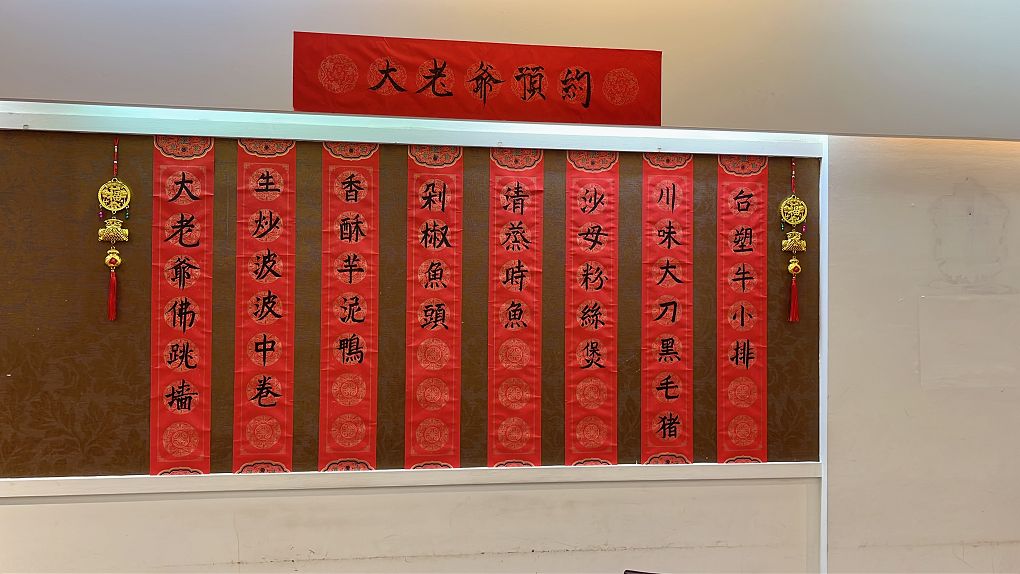 大老爺預約
台塑牛小排
川味大刀黑毛猪
沙母粉絲煲
清蒸時魚
剁椒魚頭
香酥芋泥鴨
生炒波波中卷
大老爺佛跳墻